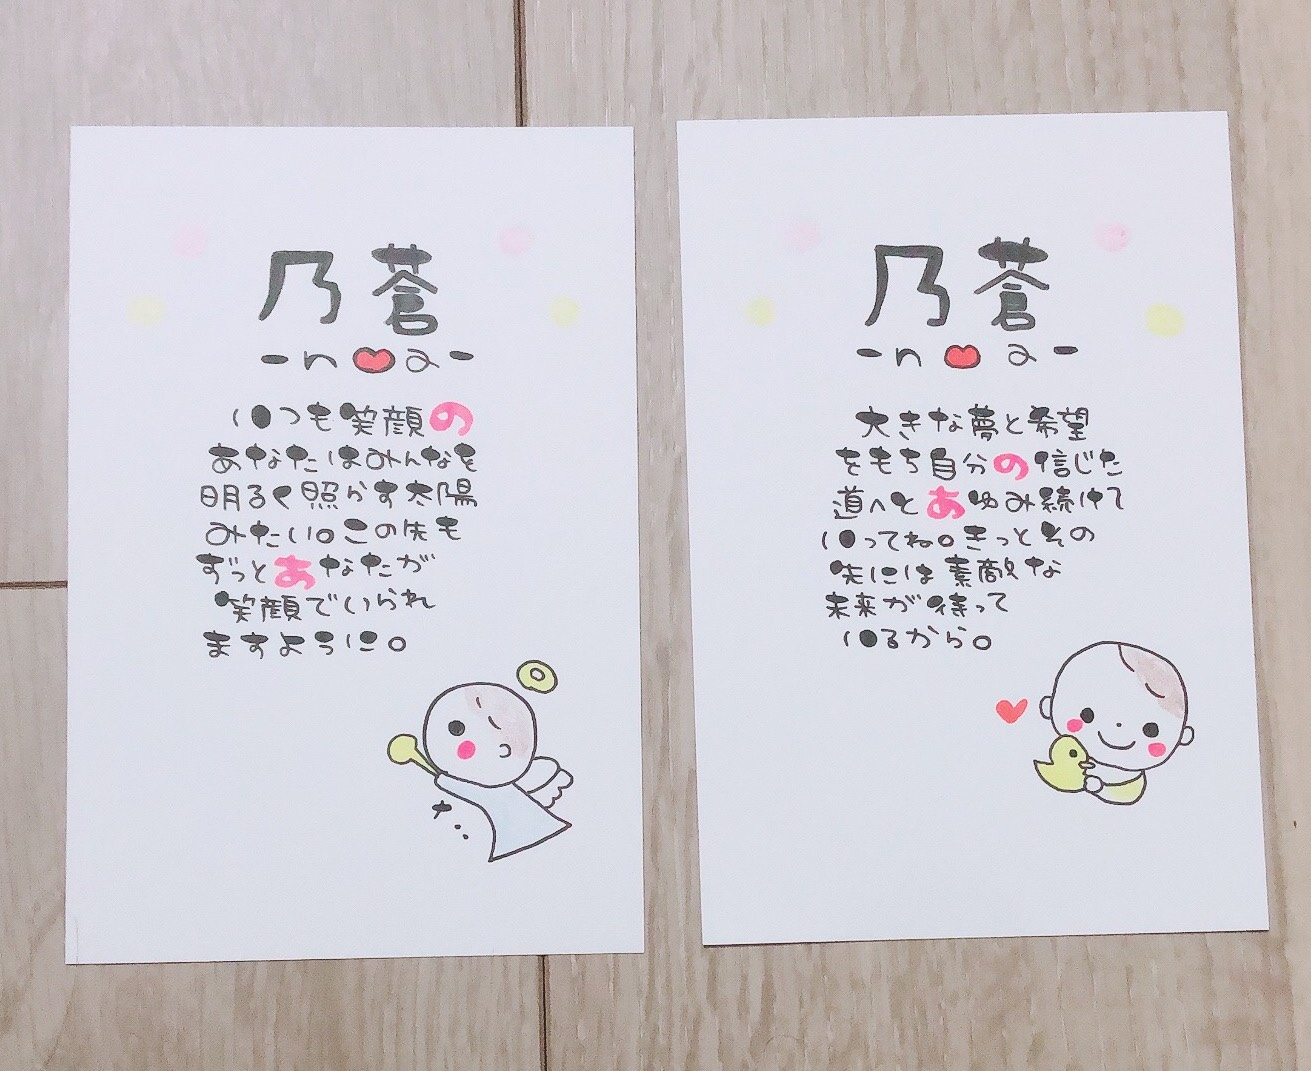 乃蒼
-n❤a-
いつも笑顔の
あなたはみんなを
明るく照らす太陽
みたい。この先も
ずっとあなたが
笑顔でいられ
ますように。
乃蒼
-n❤a-
大きな夢と希望
をもち自分の信じた
道へとあゆみ続けて
いってね。きっとその
先には素敵な
未来が待って
いるから。